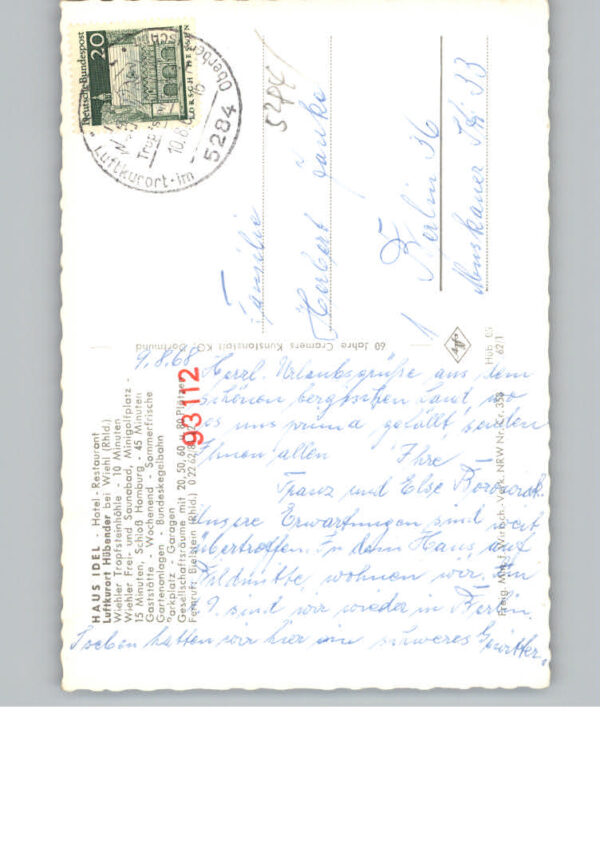 HAUS IDEL - Hotel-Restaurant
Luftkurort Hübender bei Wiehl (Rhld.)
Wiehler Tropfsteinhöhle - 10 Minuten
Wiehler Frei- und Saunabad, Minigolfplatz -
15 Minuten, Schloß Homburg - 45 Minuten
Gaststätte - Wochenend - Sommerfrische
Gartenanlagen - Bundeskegelbahn
Parkplatz - Garagen
Gesellschaftsräume mit 20, 50, 60 u. 80 Plätzen
Fernruf: Bielstein (Rhld.) 0 22 62/8
93112
9.8.68
Herrl. Urlaubsgrüße aus dem
schönen bergischen Land, wo
es uns prima gefällt, senden
Ihnen allen Ihre
Franz und Else
Unsere Erwartungen sind weit
übertroffen. In dem Haus auf
Bildmitte wohnen wir. Am
9. sind wir wieder in Berlin.
Soeben hatten wir hier ein schweres Gewitter.
60 Jahre Cramers Kunstanstalt KG, Dortmund
Deutsche Bundespost
20
LORSCH / HESSEN
Luftkurort im
10.8.6
5284
Familie
Herbert Janke
1 Berlin 36
Muskauer Str. 33
Agfa
Hüb
62/1
Freig. Min. f. Wirtsch. u. Verk. NRW Nr.